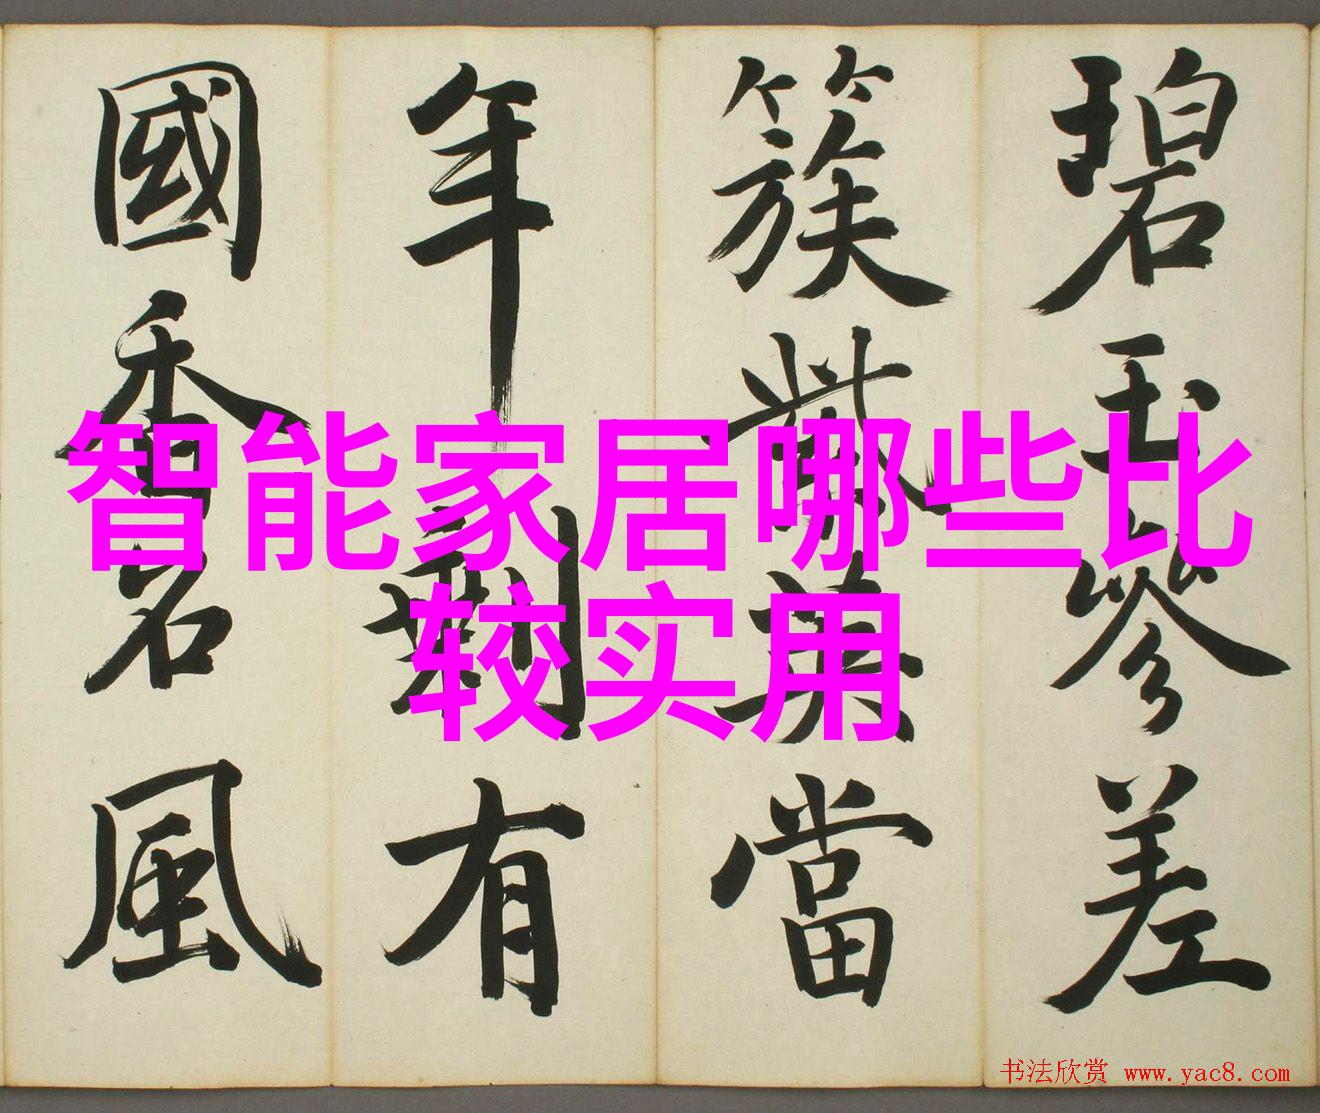 碧玉參差
簇紫英當
年剩有
國香名風
智能家居哪些比
较实用
书法欣赏 www.yac8.com